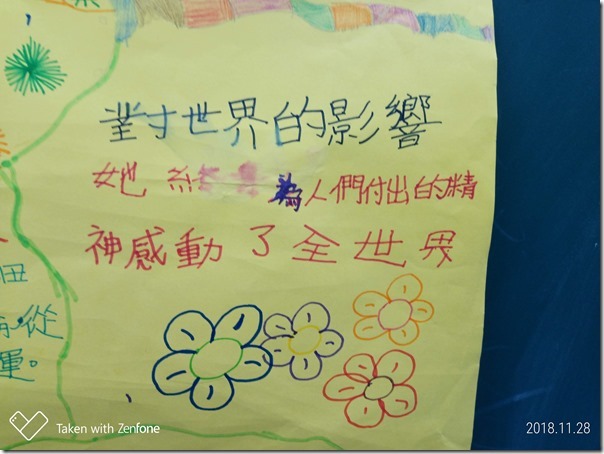 對世界的影響
她終身為人們付出的精
神感動了全世界
從
運。
Taken with Zenfone
2018.11.28